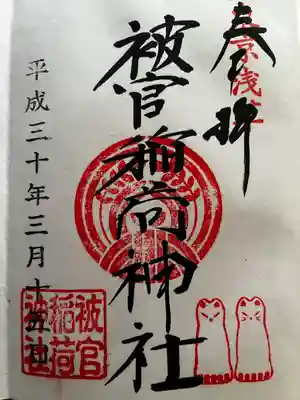 東京浅草
奉拝
被官稲荷神社
平成三十年三月十五日
被官
稲荷
神社